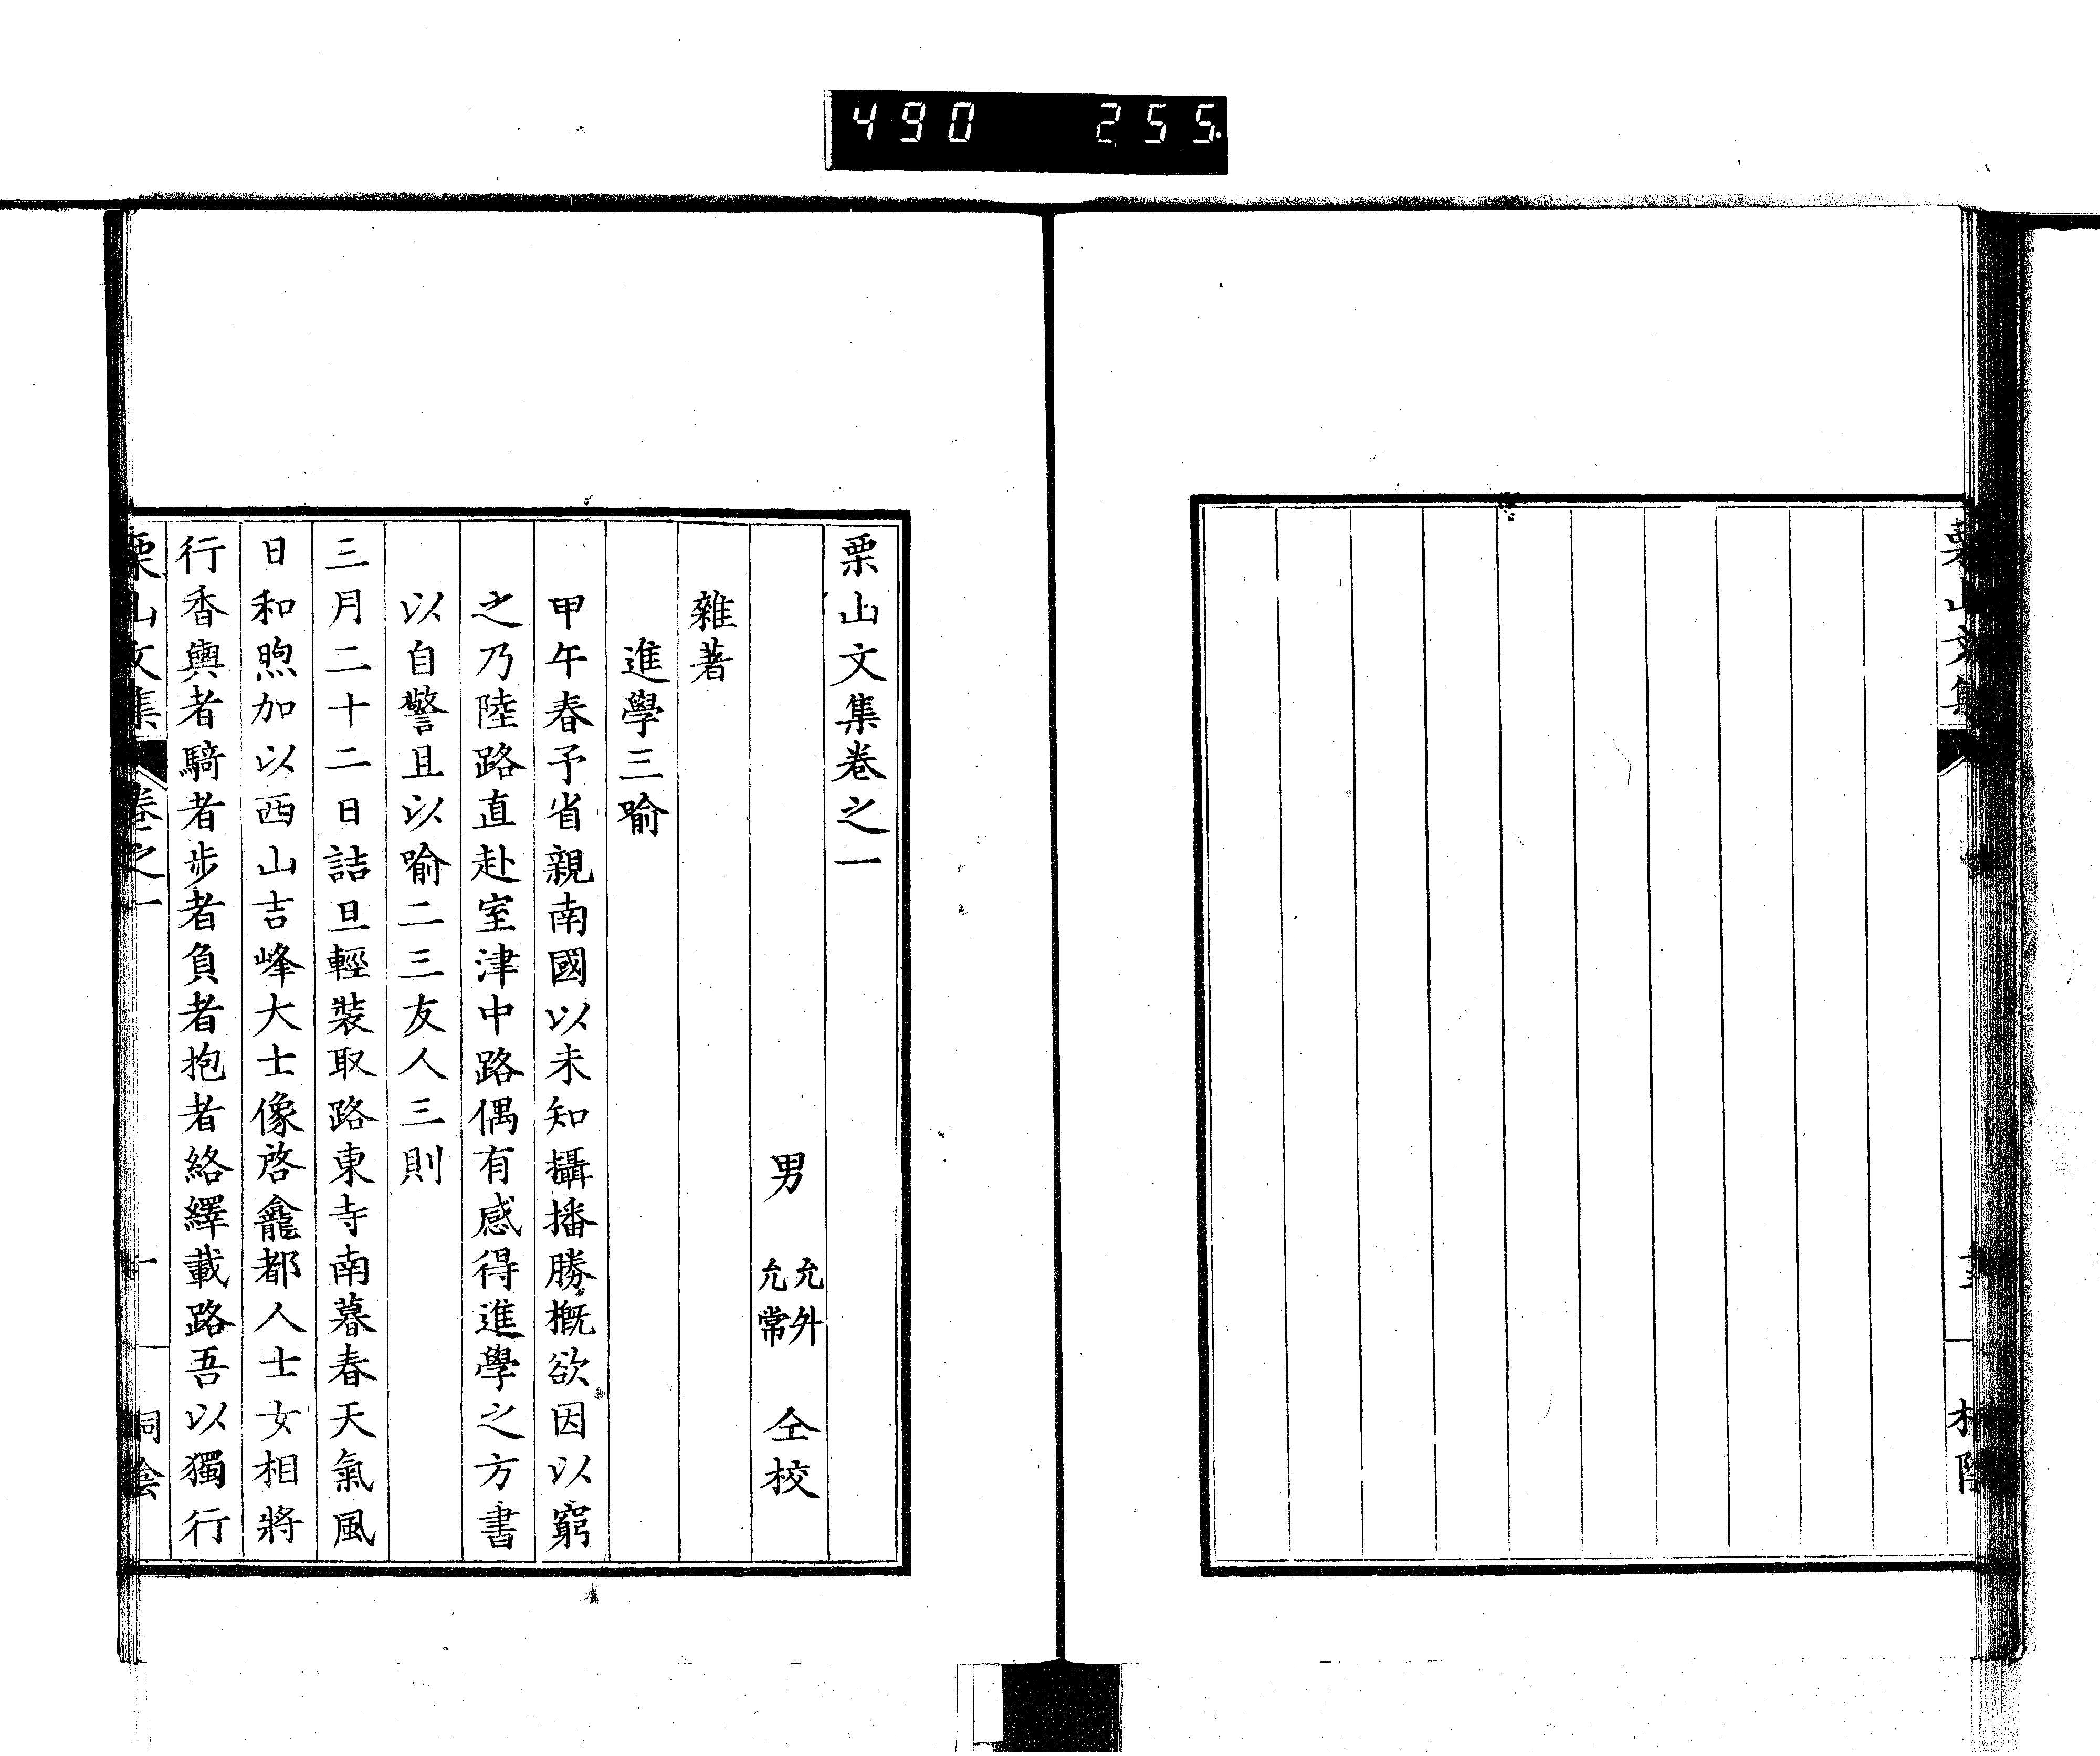 490 255
栗山文集
栗山文集卷之一
男 允升 允常 仝校
雜著
進學三喻
甲午春予省親南國以未知攝播勝概欲因以窮
之乃陸路直赴室津中路偶有感得進學之方書
以自警且以喻二三友人三則
三月二十二日詰旦輕裝取路東寺南暮春天氣風
日和煦加以西山吉峰大士像啓龕都人士女相將
行香輿者騎者步者負者抱者絡繹載路吾以獨行
栗山文集 卷之一 一 桐陰